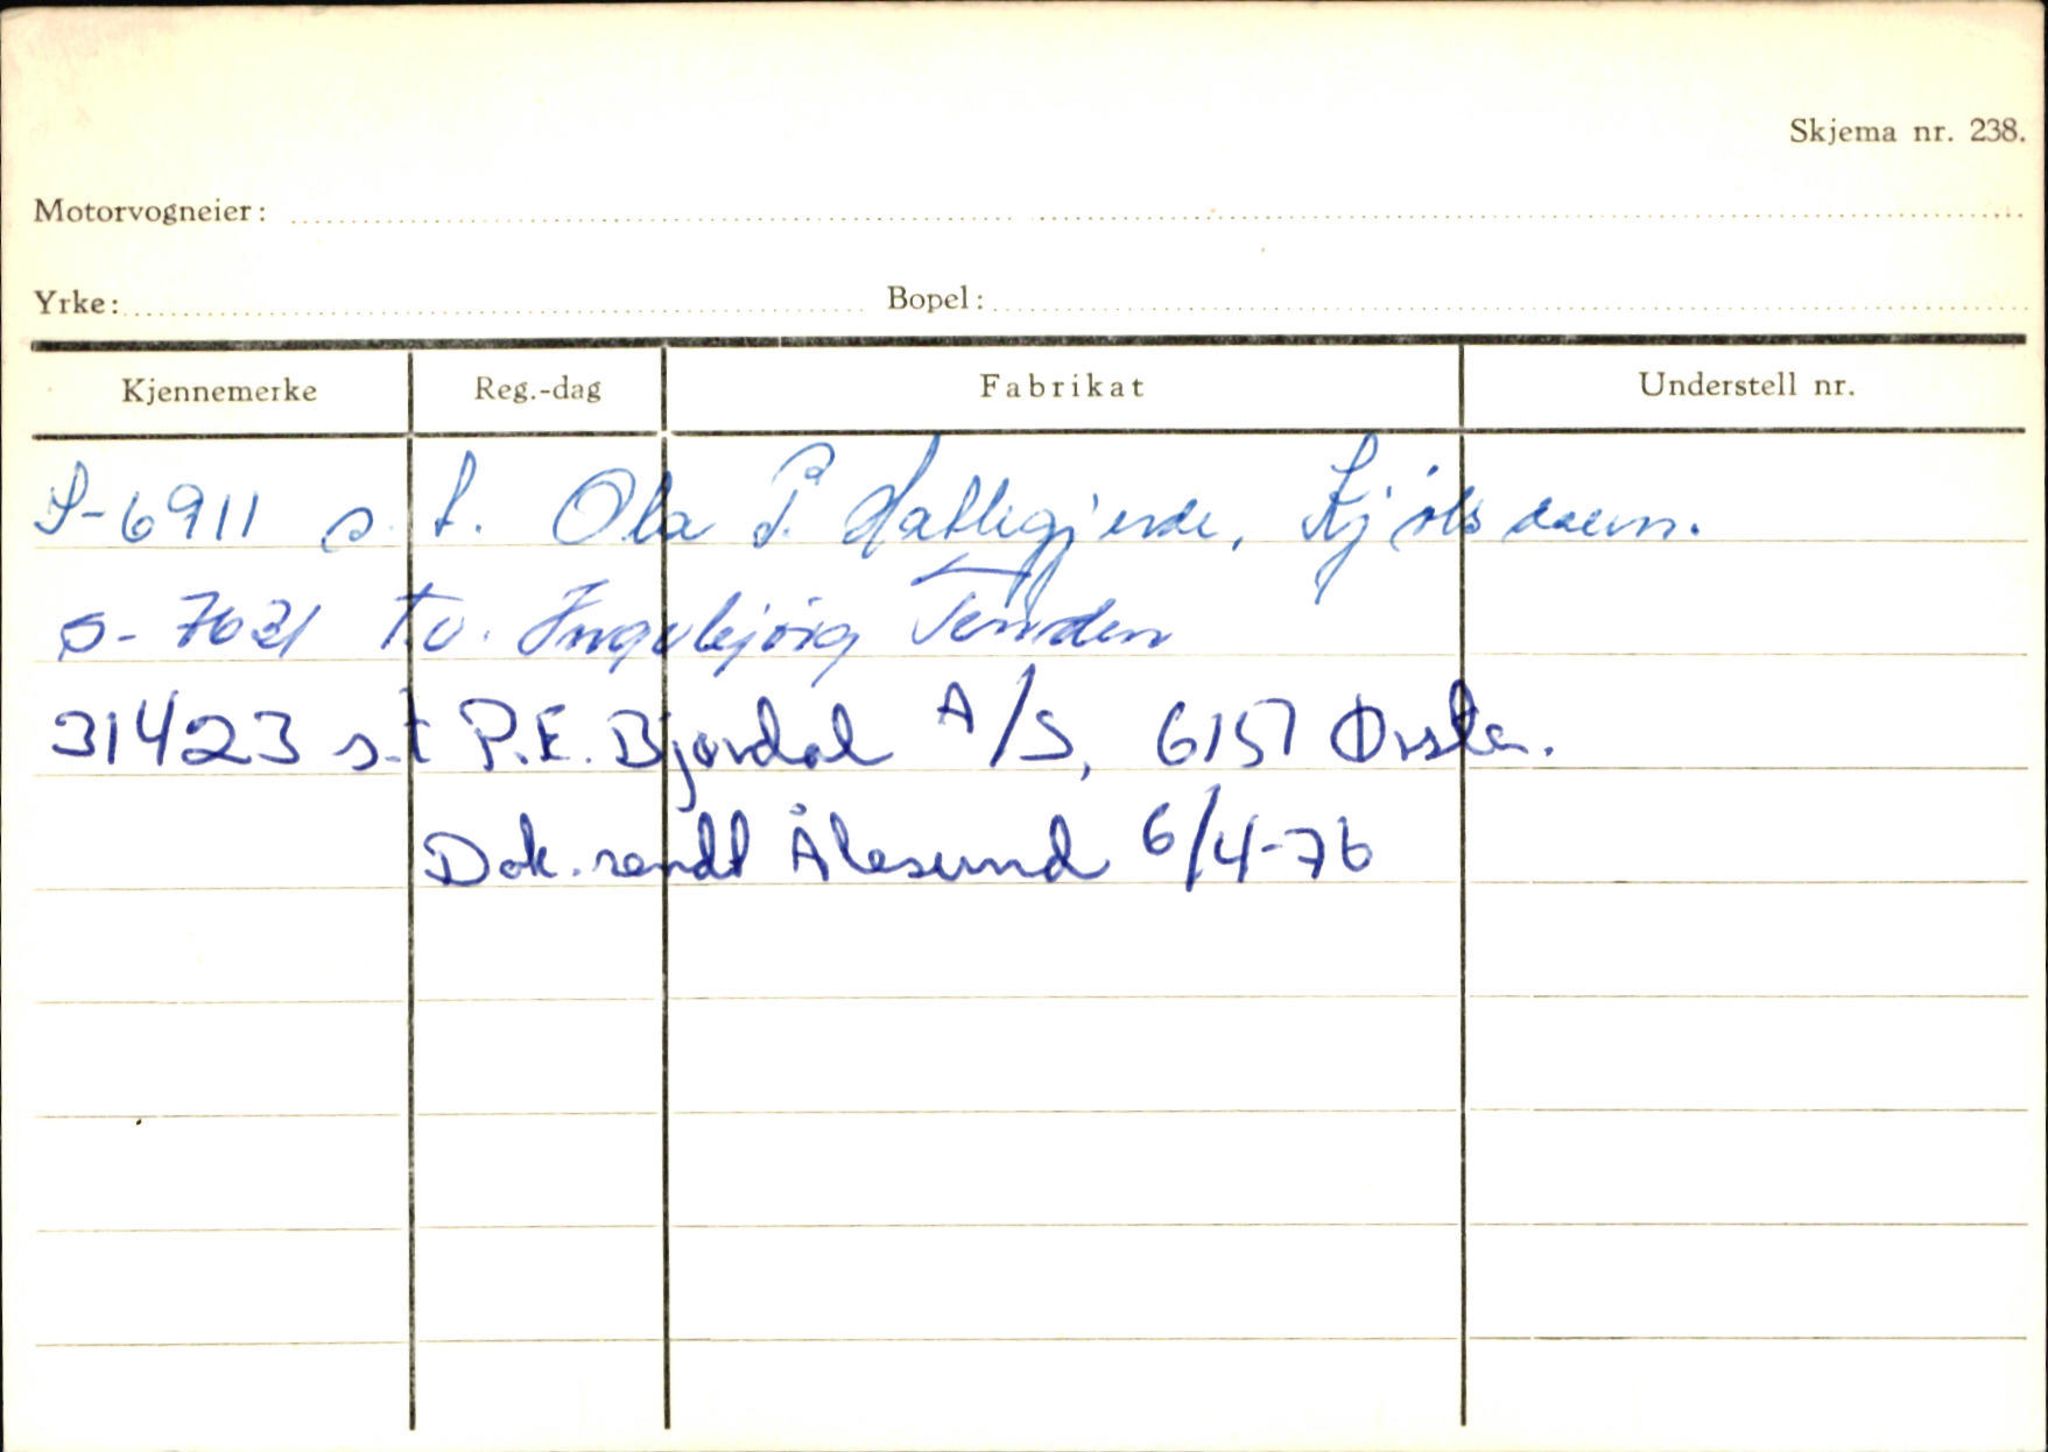 Skjema nr. 238.
Motorvogneier:
Yrke: Bopel:
Kjennemerke Reg.-dag Fabrikat Understell nr.
S-6911 s.t. Ola P. Hatlegjerde, Kjølsdalen.
S-7631 t.v. Ingebjørg Tenden
31423 s.t P.E. Bjørdal A/S, 6157 Ørsta.
Dok. sendt Ålesund 6/4-76